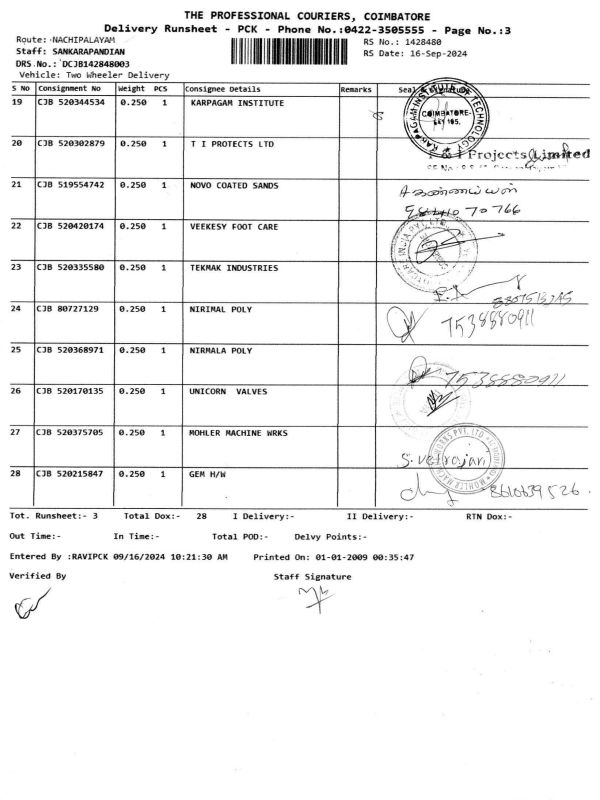 THE PROFESSIONAL COURIERS, COIMBATORE
Delivery Runsheet - PCK - Phone No.:0422-3505555 - Page No.:3
Route: NACHIPALAYAM
RS No.: 1428480
Staff: SANKARAPANDIAN
RS Date: 16-Sep-2024
DRS.No.: DCJB142848003
Vehicle: Two Wheeler Delivery
S No Consignment No Weight PCS Consignee Details Remarks Seal &
19 CJB 520344534 0.250 1 KARPAGAM INSTITUTE
KARPAGAM INSTITUTE OF TECHNOLOGY
COIMBATORE-
20 CJB 520302879 0.250 1 T I PROTECTS LTD
Projects Limited
21 CJB 519554742 0.250 1 NOVO COATED SANDS
22 CJB 520420174 0.250 1 VEEKESY FOOT CARE
23 CJB 520335580 0.250 1 TEKMAK INDUSTRIES
24 CJB 80727129 0.250 1 NIRIMAL POLY
7538880911
25 CJB 520368971 0.250 1 NIRMALA POLY
7538880911
26 CJB 520170135 0.250 1 UNICORN VALVES
27 CJB 520375705 0.250 1 MOHLER MACHINE WRKS
28 CJB 520215847 0.250 1 GEM H/W
8610639526
Tot. Runsheet:- 3 Total Dox:- 28 I Delivery:- II Delivery:- RTN Dox:-
Out Time:- In Time:- Total POD:- Delvy Points:-
Entered By :RAVIPCK 09/16/2024 10:21:30 AM Printed On: 01-01-2009 00:35:47
Verified By Staff Signature